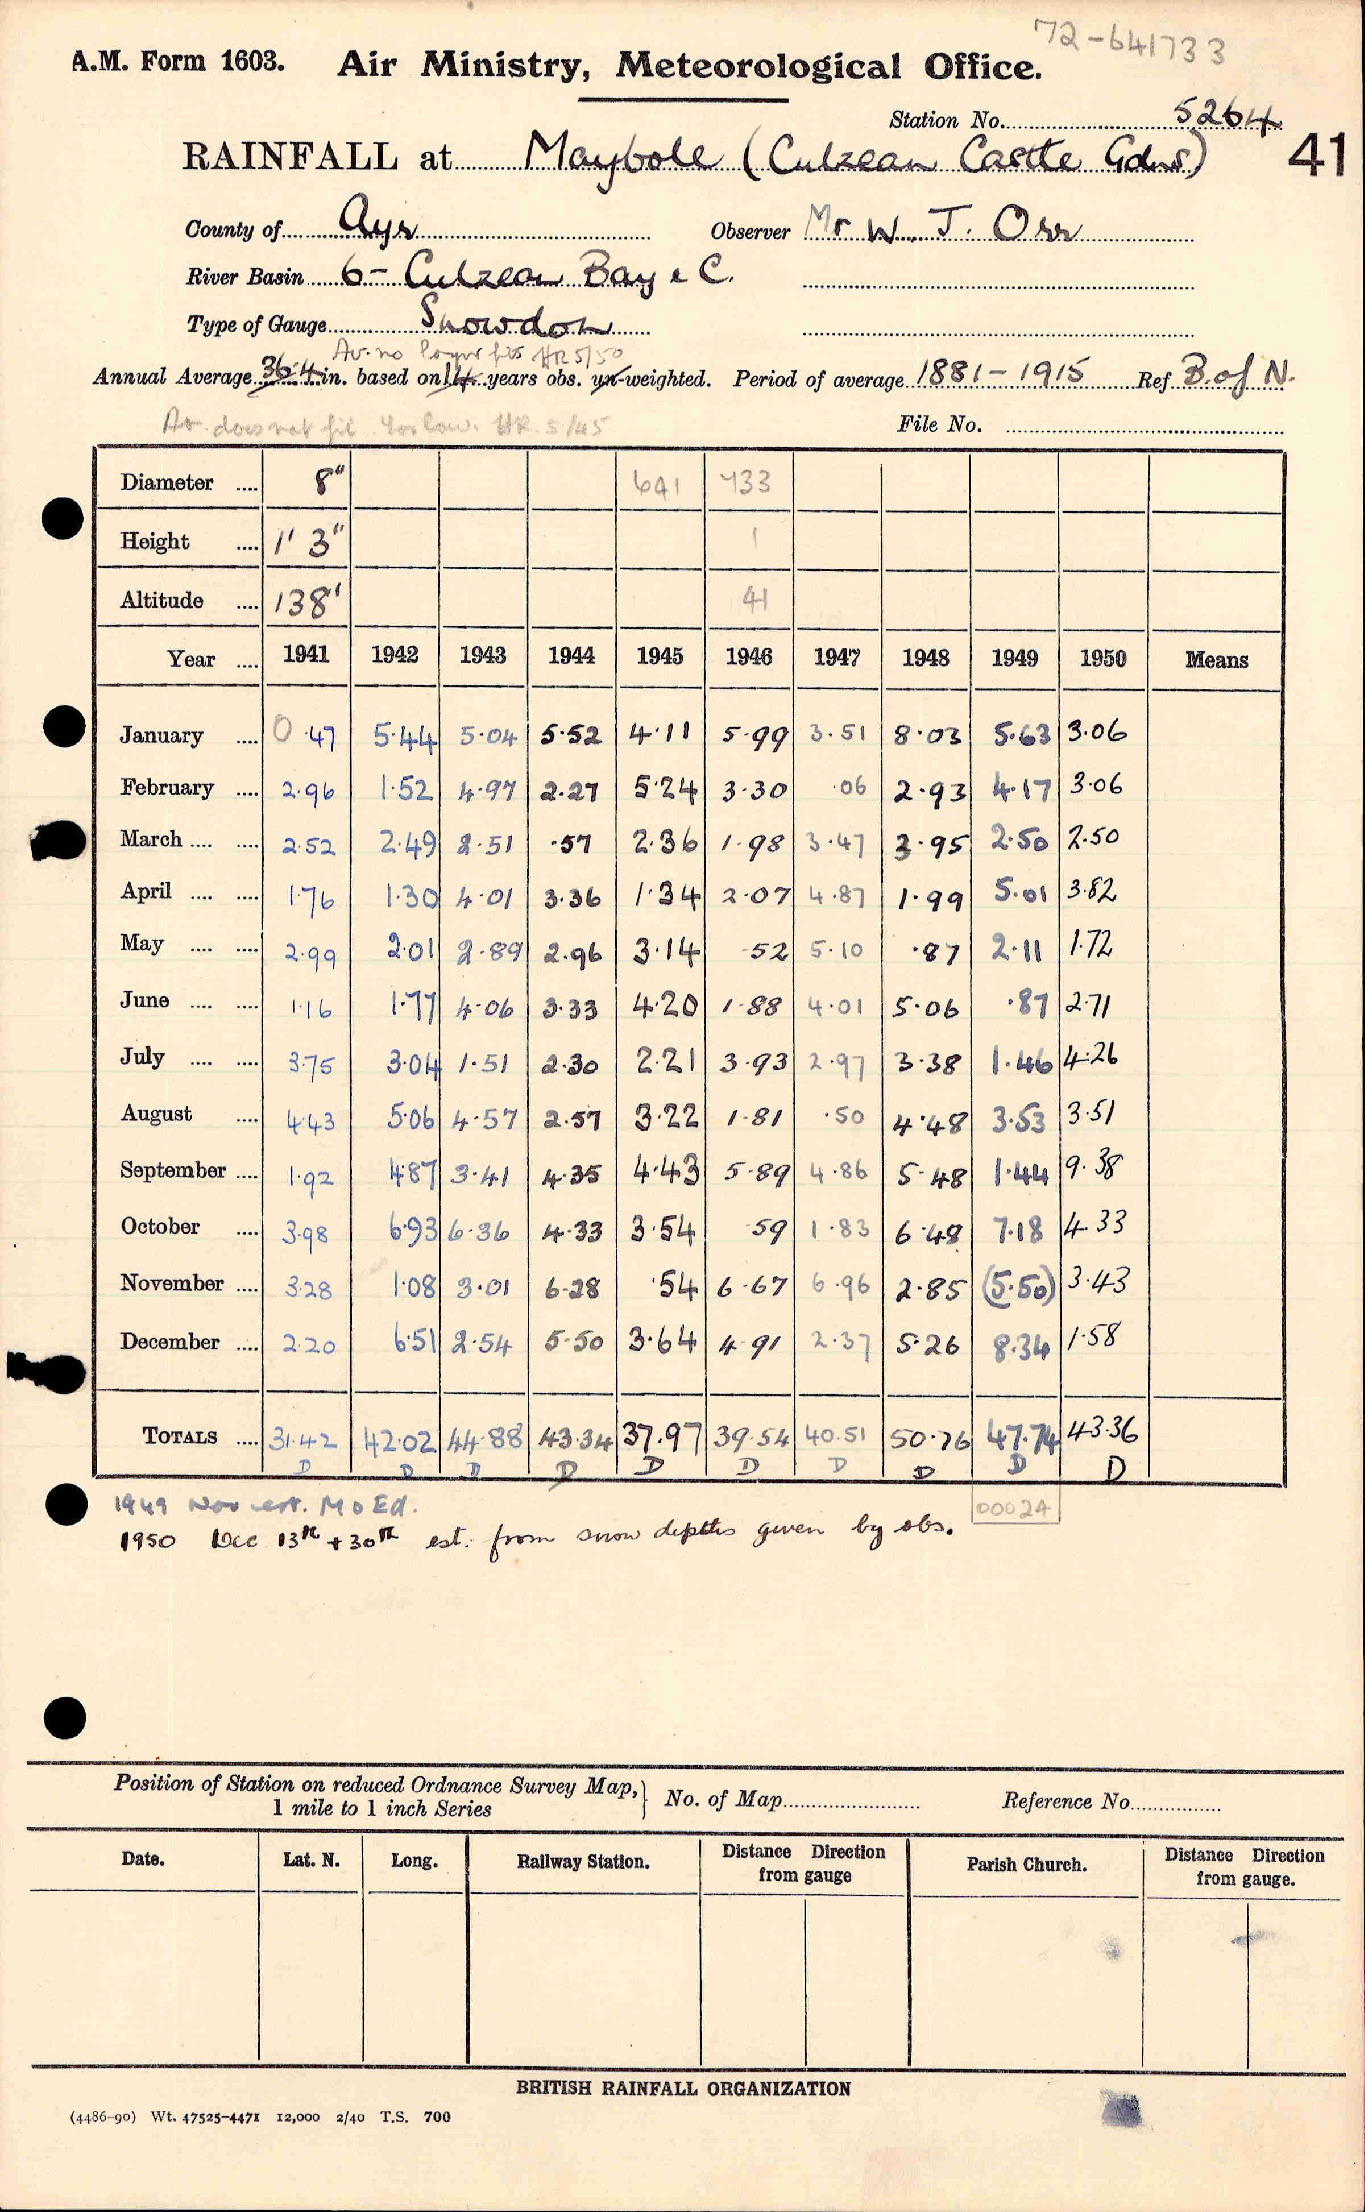 72-641733
A.M. Form 1603. Air Ministry, Meteorological Office.
Station No. 5264
RAINFALL at Maybole (Culzean Castle Gdns) 41
County of Ayr Observer Mr W. J. Orr
River Basin 6- Culzean Bay & C.
Type of Gauge Snowdon
Av. no longer fits HR 5/50
Annual Average 36.4 in. based on 14 years obs. un-weighted. Period of average 1881-1915 Ref B. of N.
Av. does not fit. Too low. HR. 5/45 File No.
Diameter 8" 641 733
Height 1' 3" 1
Altitude 138' 41
Year 1941 1942 1943 1944 1945 1946 1947 1948 1949 1950 Means
January 0.47 5.44 5.04 5.52 4.11 5.99 3.51 8.03 5.63 3.06
February 2.96 1.52 4.97 2.27 5.24 3.30 .06 2.93 4.17 3.06
March 2.52 2.49 2.51 .57 2.36 1.98 3.47 3.95 2.50 2.50
April 1.76 1.30 4.01 3.36 1.34 2.07 4.87 1.99 5.01 3.82
May 2.99 2.01 2.89 2.96 3.14 .52 5.10 .87 2.11 1.72
June 1.16 1.77 4.06 3.33 4.20 1.88 4.01 5.06 .87 2.71
July 3.75 3.04 1.51 2.30 2.21 3.93 2.97 3.38 1.46 4.26
August 4.43 5.06 4.57 2.57 3.22 1.81 .50 4.48 3.53 3.51
September 1.92 4.87 3.41 4.35 4.43 5.89 4.86 5.48 1.44 9.38
October 3.98 6.93 6.36 4.33 3.54 .59 1.83 6.48 7.18 4.33
November 3.28 1.08 3.01 6.28 .54 6.67 6.96 2.85 (5.50) 3.43
December 2.20 6.51 2.54 5.50 3.64 4.91 2.37 5.26 8.34 1.58
TOTALS 31.42 42.02 44.88 43.34 37.97 39.54 40.51 50.76 47.74 43.36
D D D D D D D D D D
1949 Nov est. M O Ed. 00024
1950 Dec 13th + 30th est. from snow depths given by obs.
Position of Station on reduced Ordnance Survey Map, No. of Map Reference No.
1 mile to 1 inch Series
Date. Lat. N. Long. Railway Station. Distance Direction from gauge Parish Church. Distance Direction from gauge.
BRITISH RAINFALL ORGANIZATION
(4486-90) Wt. 47525-4471 12,000 2/40 T.S. 700